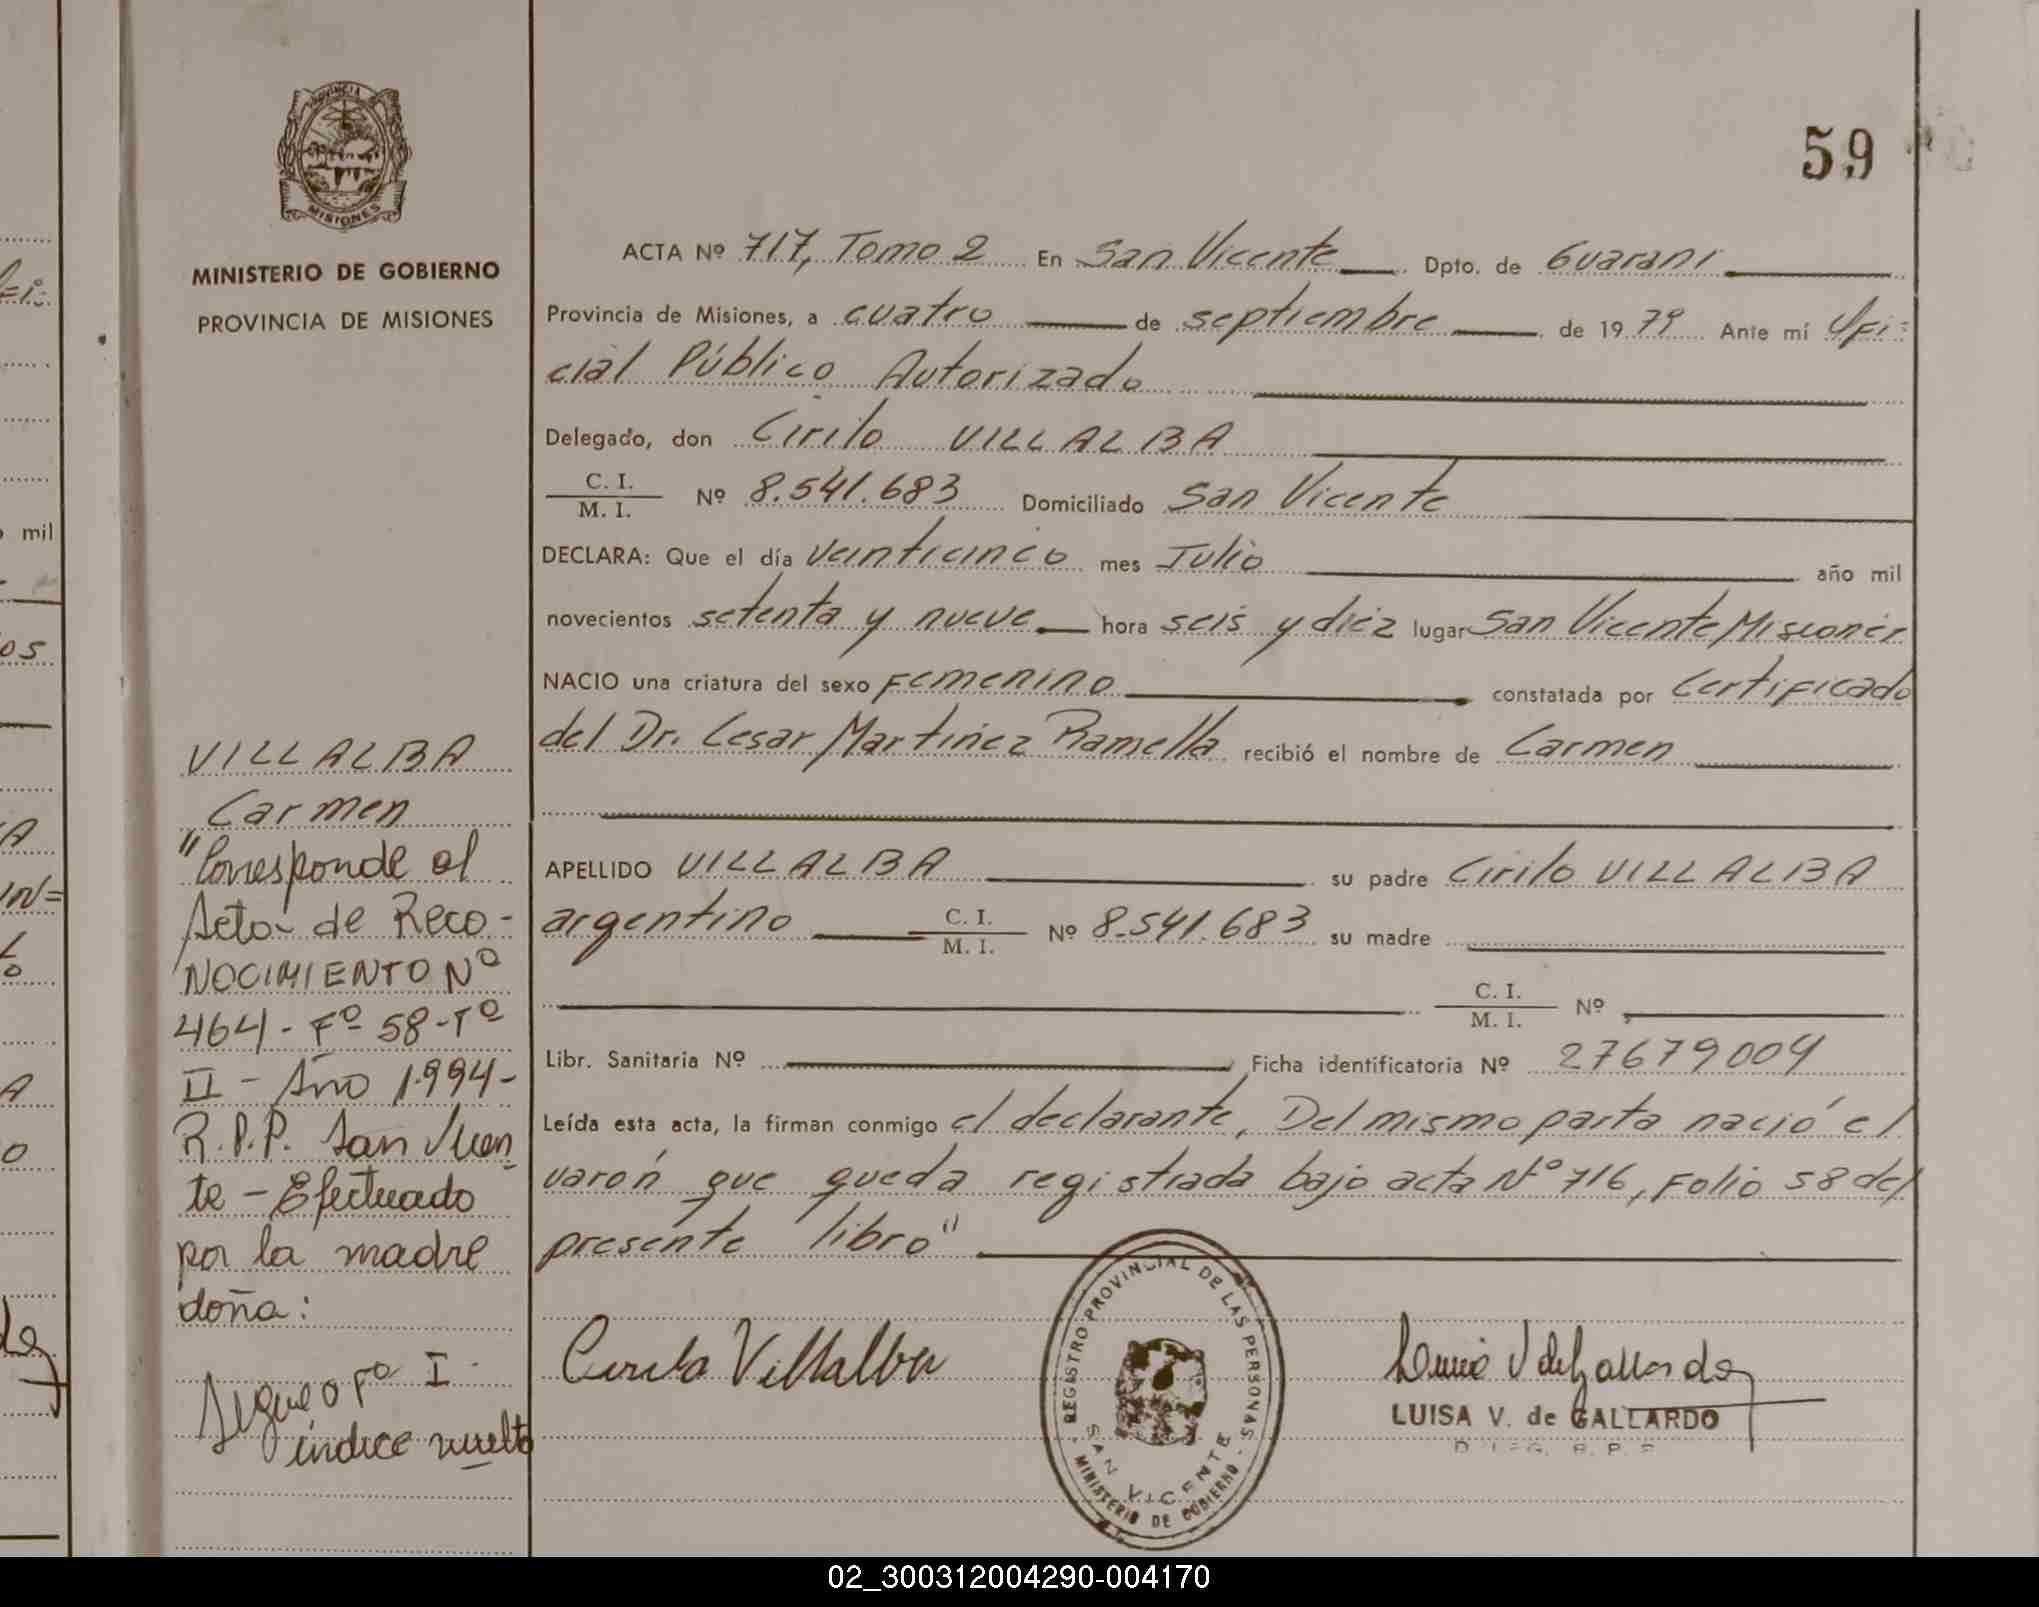 PROVINCIA DE
MISIONES
MINISTERIO DE GOBIERNO
PROVINCIA DE MISIONES
59
ACTA Nº 717, Tomo 2 En San Vicente Dpto. de Guarani
Provincia de Misiones, a cuatro de septiembre de 19 79 Ante mí Ofi=
cial Público Autorizado
Delegado, don Cirilo VILLALBA
C. I.
M. I. Nº 8.541.683 Domiciliado San Vicente
DECLARA: Que el día veinticinco mes Julio año mil
novecientos setenta y nueve hora seis y diéz lugar San Vicente, Misiones
NACIO una criatura del sexo Femenino constatada por Certificado
del Dr. Cesar Martínez Ramella recibió el nombre de Carmen
APELLIDO VILLALBA su padre Cirilo VILLALBA
argentino C. I. M. I. Nº 8.541.683 su madre
C. I. M. I. Nº
Libr. Sanitaria Nº Ficha identificatoria Nº 27679004
Leída esta acta, la firman conmigo el declarante, Del mismo parto nació el
varón que queda registrada bajo acta Nº 716, Folio 58 del
presente libro"
Cirilo Villalba
LUISA V. de GALLARDO
REGISTRO PROVINCIAL DE LAS PERSONAS
SAN VICENTE
MINISTERIO DE GOBIERNO
VILLALBA
Carmen
"Corresponde al
Acta de Reco-
NOCIMIENTO Nº
464- Fº 58-Tº
II - Año 1.994-
R.P.P. San Vicen
te - Efectuado
por la madre
doña:
Sigue a Fº I
indice vuelto
mil
02_300312004290-004170